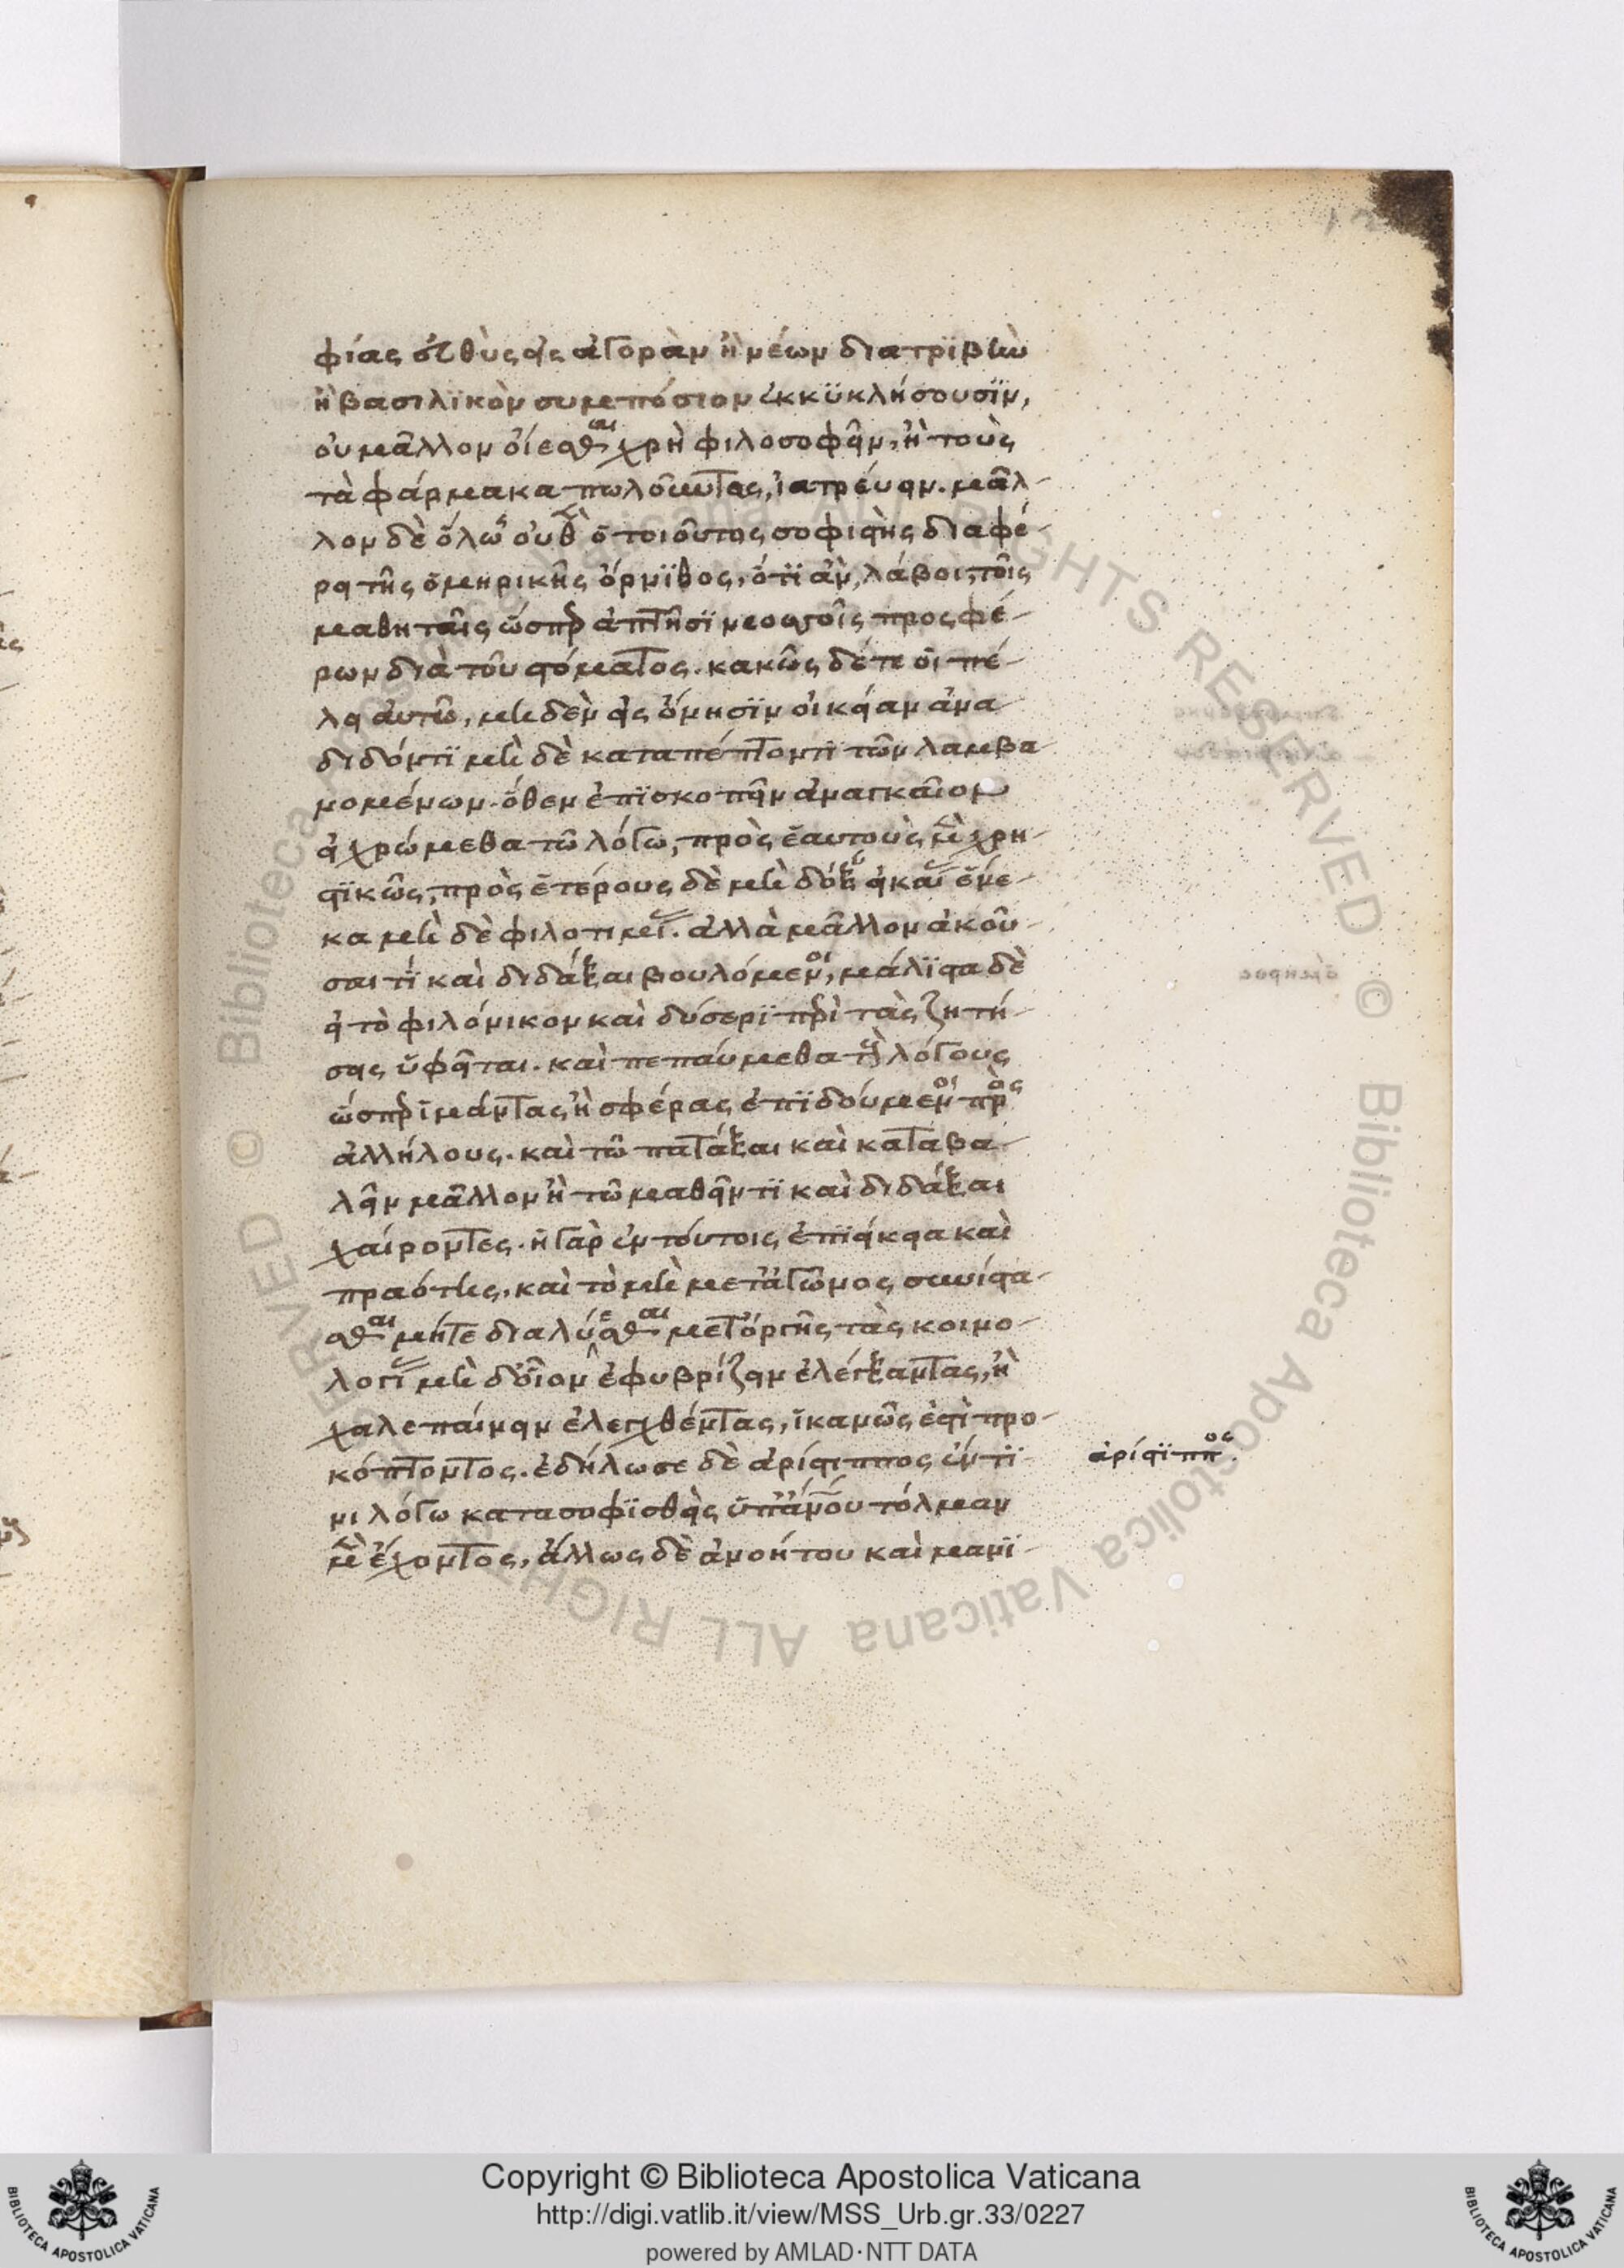 φίας εὐθὺς εἰς ἀγορὰν ἢ νέων διατρϊβὴν
ἢ βασιλϊκὸν συμπόσιον ἐκκϋκλήσουσϊν,
οὐ μᾶλλον οἴεσθαι χρὴ φιλοσοφεῖν, ἢ τοὺς
τὰ φάρμακα πωλοῦντας, ἰατρεύειν. μᾶλ-
λον δὲ ὅλως οὐθὲν ὁ τοιοῦτος σοφιστὴς διαφέ-
ρει τῆς ὁμηρικῆς ὄρνϊθος, ὅτϊ ἂν λάβοι, τοῖς
μαθηταῖς ὥσπερ ἀπτῆσϊ νεοσσοῖς προςφέ-
ρων διὰ τοῦ στόματος. κακῶς δέ τε οἱ πέ-
λει αὐτῶ, μηδὲν εἰς ὄνησϊν οἰκείαν ἀνα
διδόντϊ μὴ δὲ καταπέττοντϊ τῶν λαμβα
νομένων. ὅθεν ἐπϊσκοπεῖν ἀναγκαῖον
εἰ χρώμεθα τῶ λόγω, πρὸς ἑαυτοὺς μὲν χρη-
στϊκῶς, πρὸς ἑτέρους δὲ μὴ δόξης εἰκαίας ἕνε-
κα μὴ δὲ φιλοτιμίας. ἀλλὰ μᾶλλον ἀκοῦ-
σαι τϊ καὶ διδάξαι βουλόμενοι, μάλϊστα δὲ
εἰ τὸ φιλόνικον καὶ δύσερϊ περὶ τὰς ζητή-
σεις ὑφεῖται. καὶ πεπαύμεθα τοὺς λόγους
ὥσπερ ἱμάντας ἢ σφέρας ἐπϊδούμενοι πρὸς
ἀλλήλους. καὶ τῶ πατάξαι καὶ καταβα-
λεῖν μᾶλλον ἢ τῶ μαθεῖν τϊ καὶ διδάξαι
χαίροντες. ἡ γὰρ ἐν τούτοις ἐπϊείκεια καὶ
πραότης, καὶ τὸ μὴ μετ' ἀγῶνος συνίστα-
σθαι μήτε διαλύεσθαι μετ' ὀργῆς τὰς κοινο-
λογίας μὴ δ' οἷον ἐφυβρίζειν ἐλέγξαντας, ἢ
χαλεπαίνειν ἐλεγχθέντας, ἱκανῶς ἐστὶ προ-
κόπτοντος. ἐδήλωσε δὲ ἀρίστιππος ἔν τϊ
νι λόγω κατασοφϊσθεὶς ὑπ' ἀνου τόλμαν
μὲν ἔχοντος, ἄλλως δὲ ἀνοήτου καὶ μανϊ-
ἀρίστϊππος.
Copyright © Biblioteca Apostolica Vaticana
http://digi.vatlib.it/view/MSS_Urb.gr.33/0227
powered by AMLAD·NTT DATA